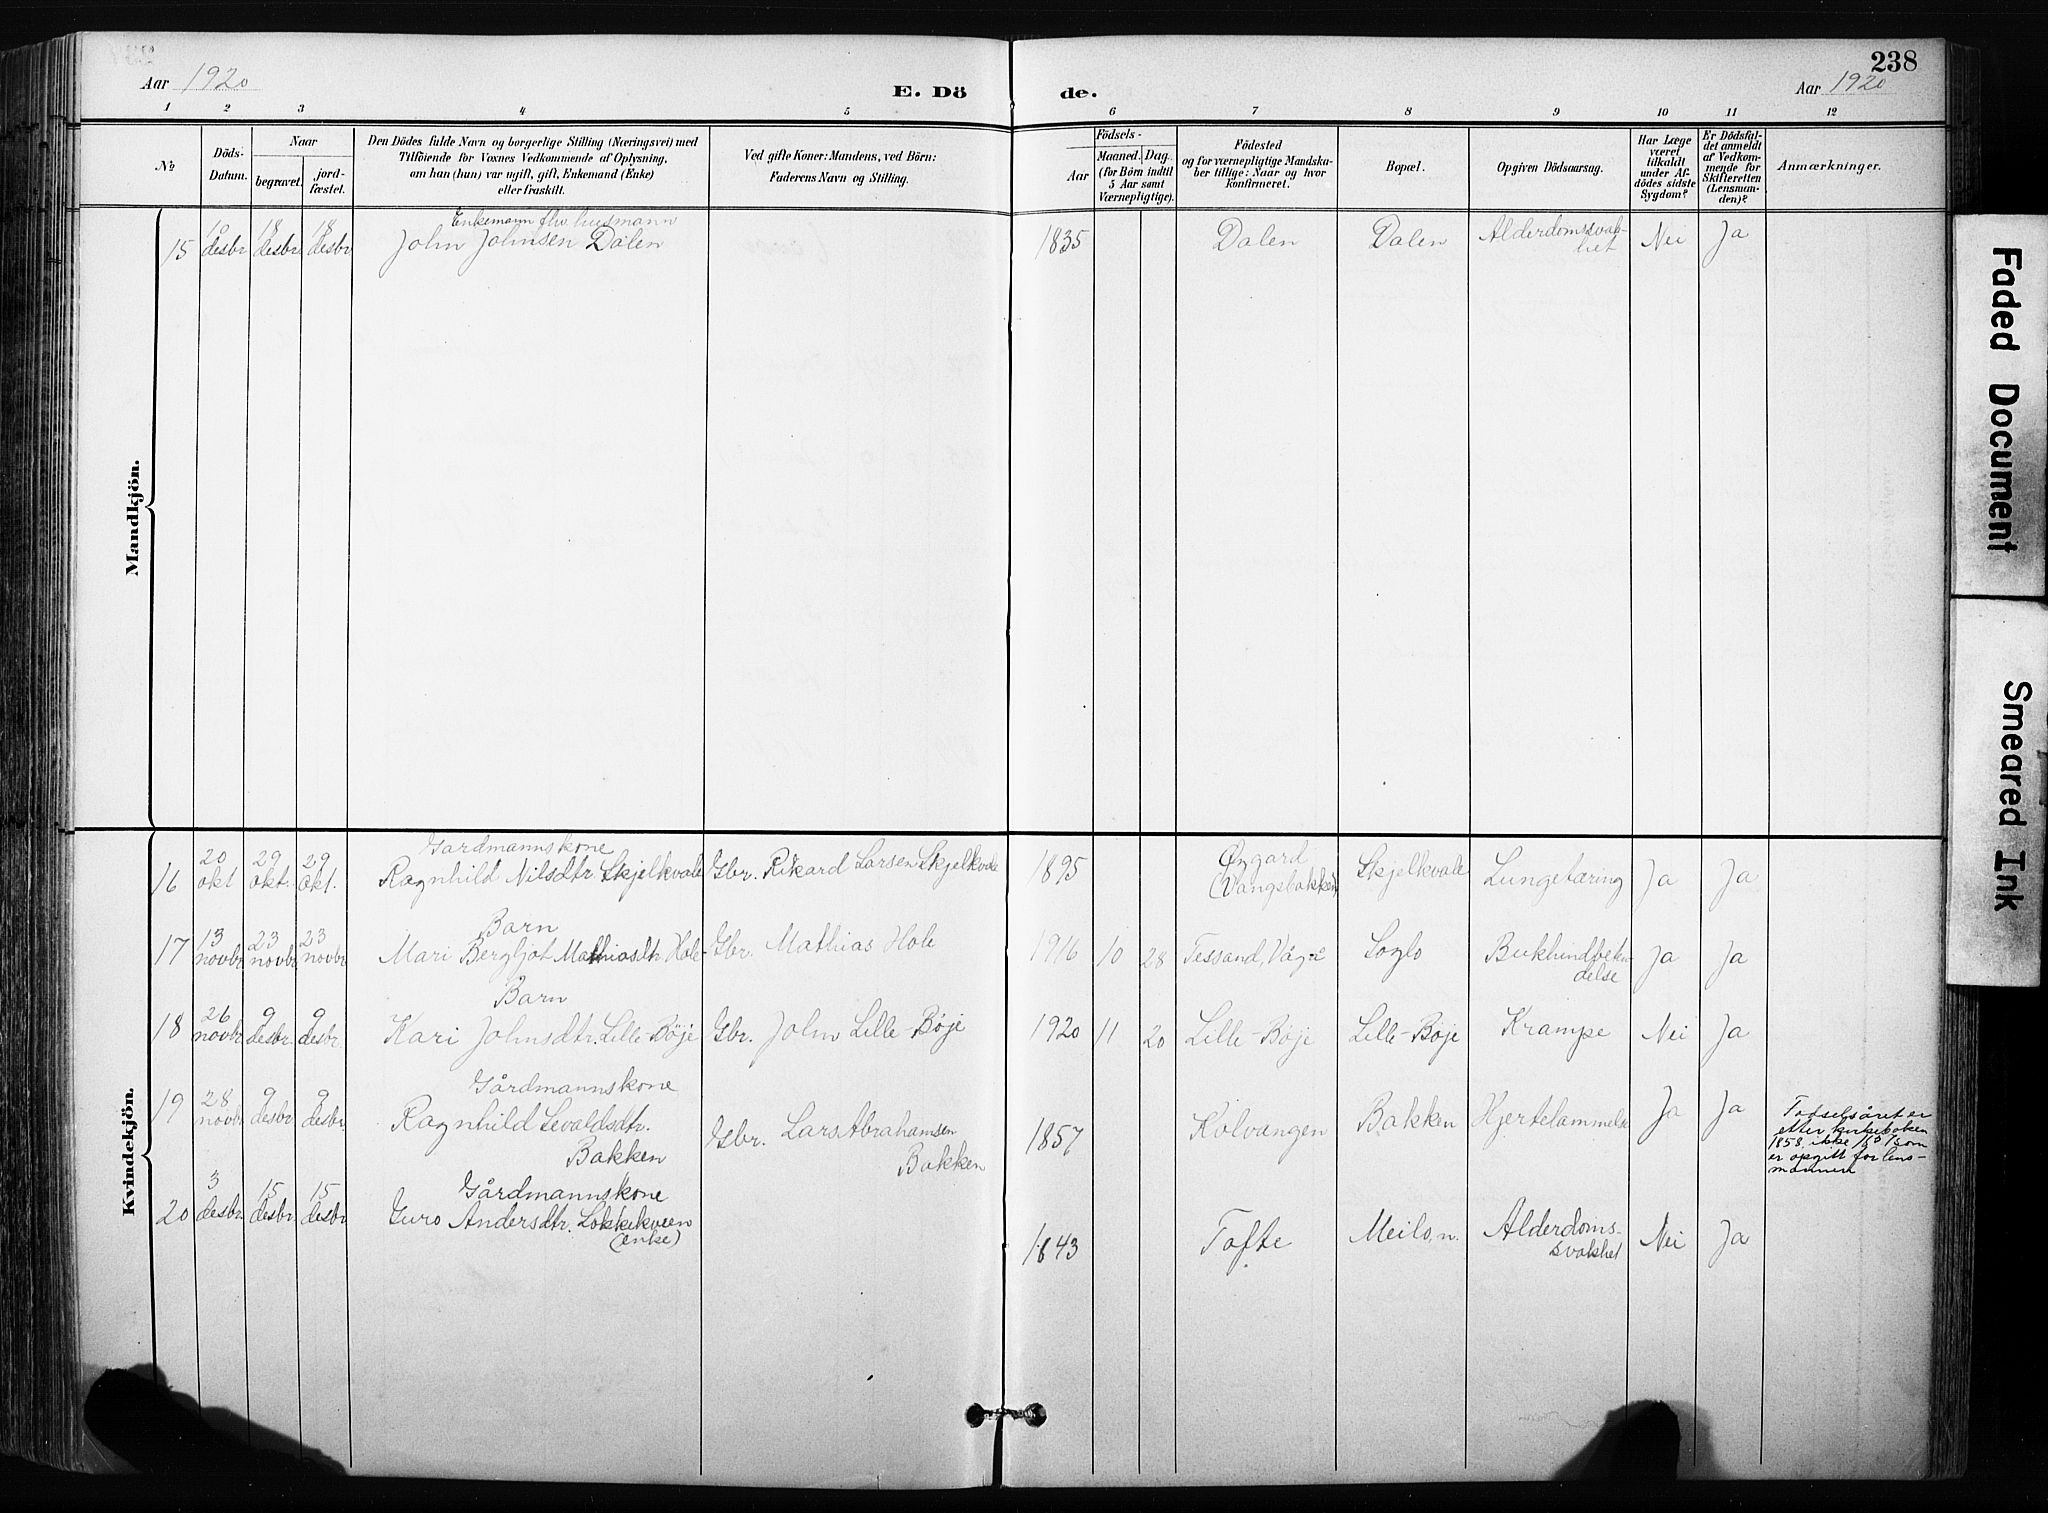 238
Aar 1920
E. Dö de.
Aar 1920
1 2 3 4 5 6 7 8 9 10 11 12
No
Döds-
Datum.
Naar
begravet.
jord-
fæstet.
Den Dödes fulde Navn og borgerlige Stilling (Næringsvei) med
Tilföiende for Voxnes Vedkommende af Oplysning,
om han (hun) var ugift, gift, Enkemand (Enke)
eller fraskilt.
Ved gifte Koner: Mandens, ved Börn:
Faderens Navn og Stilling.
Födsels-
Aar
Maaned. Dag.
(for Börn indtil
5 Aar samt
Værnepligtige).
Födested
og for værnepligtige Mandska-
ber tillige: Naar og hvor
konfirmeret.
Bopæl.
Opgiven Dödsaarsag.
Har Læge
været
tilkaldt
under Af-
dödes sidste
Sygdom?
Er Dödsfal-
det anmeldt
af Vedkom-
mende for
Skifteretten
(Lensman-
den)?
Anmærkninger.
Mandkjön.
Enkemann fhv. husmann
15 desbr 18 desbr 18 desbr John Johnsen Dalen 1835 Dalen Dalen Alderdomssvak-
het Nei Ja
Kvindekjön.
Gardmannskone
16 20 okt 29 okt. 29 okt. Ragnhild Nilsdtr Skjelkvale Gbr. Rikard Larsen Skjelkvale 1895 Øygard
(Vangsbakken) Skjelkvale Lungetæring Ja Ja
Barn
17 13 novbr 23 novbr 23 novbr Mari Bergljot Mathiasdtr Hole Gbr. Mathias Hole 1916 10 28 Tessand, Vågå Soglo Bukhindbeten-
delse Ja Ja
Barn
18 26 novbr 9 desbr. 9 desbr. Kari Johnsdtr. Lille-Bøje Gbr. John Lille-Bøje 1920 11 20 Lille-Bøje Lille-Bøje Krampe Nei Ja
Gårdmannskone
19 28 novbr 9 desbr. 9 desbr. Ragnhild Sevaldsdtr.
Bakken Gbr. Lars Abrahamsen
Bakken 1857 Kolvangen Bakken Hjertelammelse Ja Ja
Fødselsåret er
etter kirkeboken
1858, ikke 1857 som
er opgitt for lens-
mannen
Gårdmannskone
20 3 desbr. 15 desbr 15 desbr Guro Andersdtr. Lokkekveen
(enke) 1843 Tofte Meilo, n. Alderdoms-
svakhet Nei Ja
Faded Document
Smeared Ink